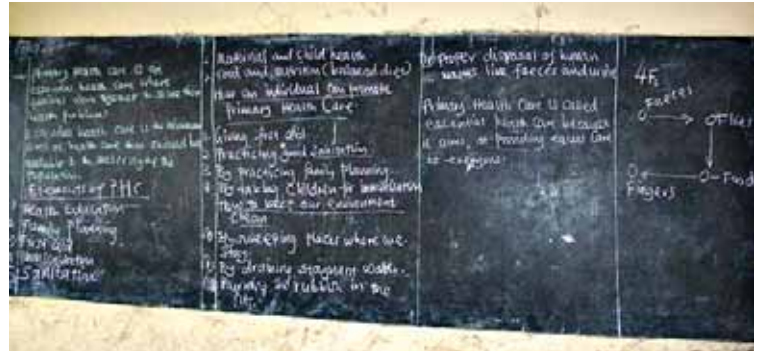 Primary Health care is an
essential health care where
people come together to solve their
health problems
Essential health care is the
of health care that should be
available to the majority of the
population.
Elements of PHC
Health Education
Family Planning
First Aid
Immunisation
Sanitation
Maternal and Child health
Food and nutrition (balanced diet)
How an individual can promote
Primary Health Care
Giving first aid
Practicing good sanitation
By practicing family Planning
By taking Children for immunisation
How to keep our environment
clean
By sweeping places where we
stay
By draining stagnant water.
rubbish in the
pit
Proper disposal of human
wastes like faeces and urine
Primary Health Care is called
essential health care because
it aims at providing equal care
to everyone
4Fs
Faeces
Flies
Food
Fingers